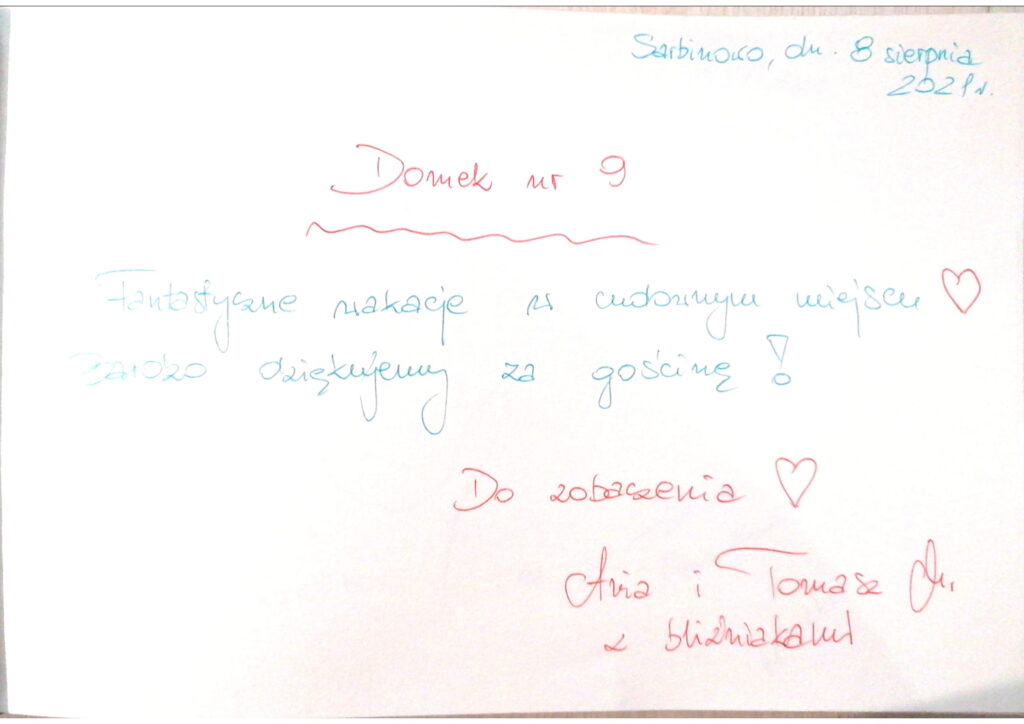 Sarbinowo, dn. 8 sierpnia
2021r.
Domek nr 9
Fantastyczne wakacje w cudownym miejscu
Bardzo dziękujemy za gościnę!
Do zobaczenia
Ania i Tomasz M.
z bliźniakami